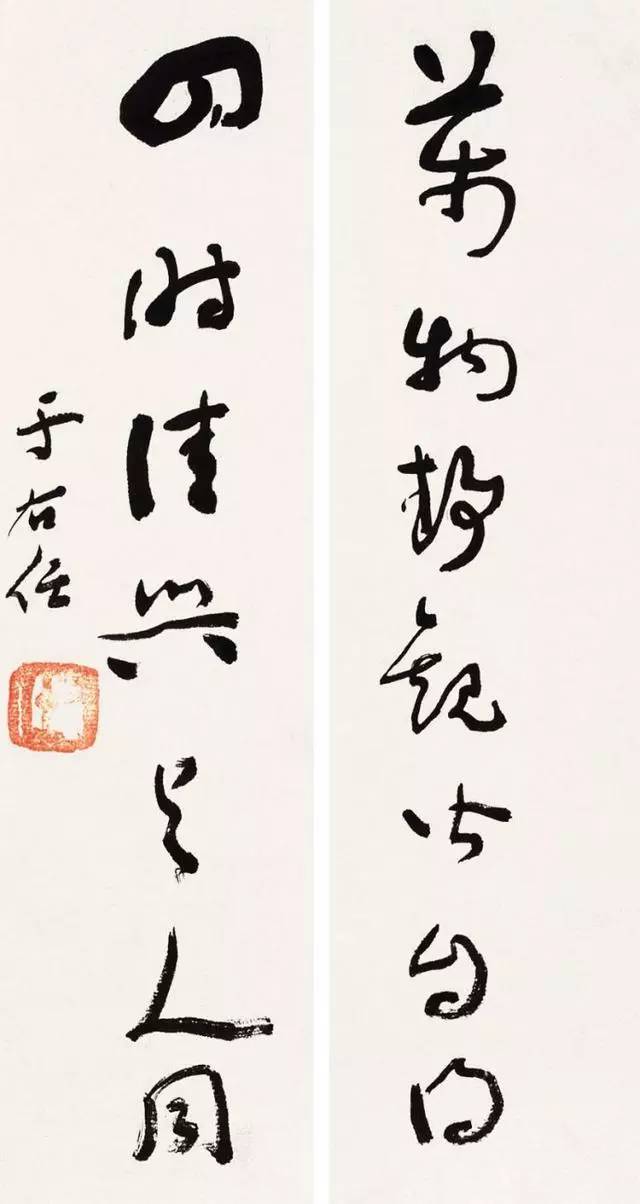 萬物静觀皆自得
四時佳興与人同
于右任